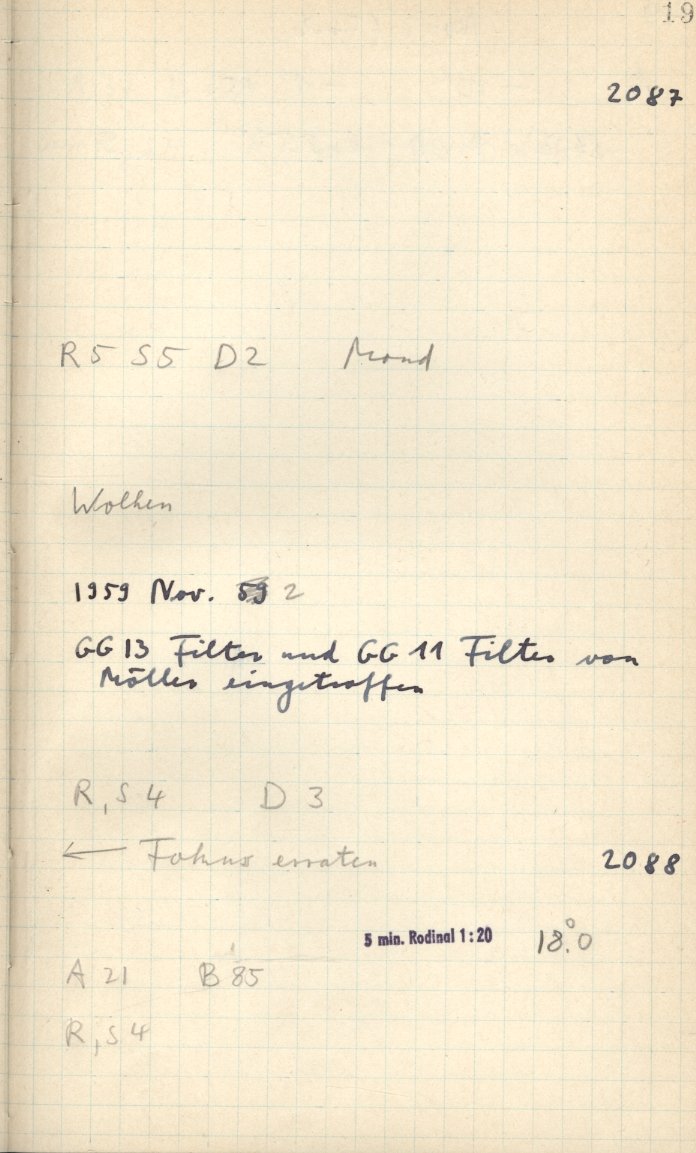 19
2087
R5 S5 D2 Mond
Wolken
1959 Nov. 59 2
GG 13 Filter und GG 11 Filter von
Möller eingetroffen
R, S 4 D 3
← Fokus erraten 2088
5 min. Rodinal 1:20 18.°0
A 21 B 85
R, S 4